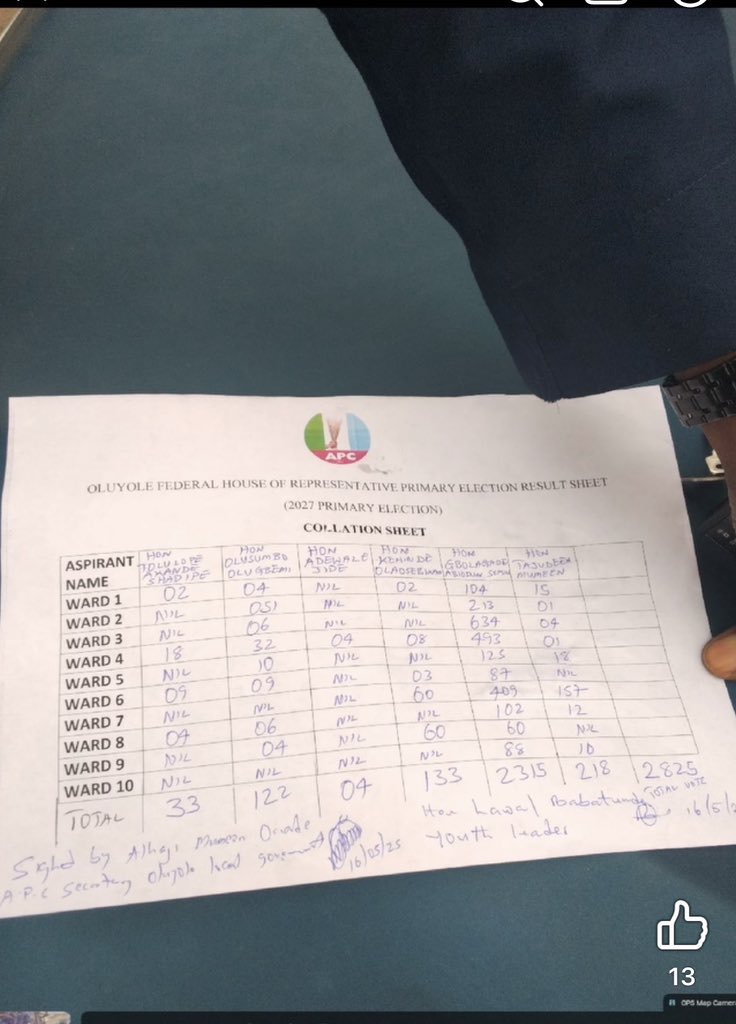 APC
OLUYOLE FEDERAL HOUSE OF REPRESENTATIVE PRIMARY ELECTION RESULT SHEET
(2027 PRIMARY ELECTION)
COLLATION SHEET
ASPIRANT NAME HON TOLULOPE AKANDE SHADIPE HON OLUSUMBO OLUGBEMI HON ADEWALE JIDE HON KEHINDE OLAOSEBIKAN HON GBOLAGADE ABIODUN HON TAJUDEEN MUMEEN
WARD 1 02 04 NIL 02 104 15
WARD 2 NIL 051 NIL NIL 213 01
WARD 3 NIL 06 NIL NIL 634 04
WARD 4 18 32 04 08 493 01
WARD 5 NIL 10 NIL NIL 125 18
WARD 6 09 09 NIL 03 87 NIL
WARD 7 NIL NIL NIL 60 409 157
WARD 8 04 06 NIL NIL 102 12
WARD 9 NIL 04 NIL 60 60 NIL
WARD 10 NIL NIL NIL NIL 88 10
TOTAL 33 122 04 133 2315 218 2825
TOTAL VOTE
Signed by Alhaji Mumeen
A.P.C Secretary Oluyole local government 16/05/25
Hon Lawal Babatunde
Youth leader
16/5/2
13
GPS Map Camera